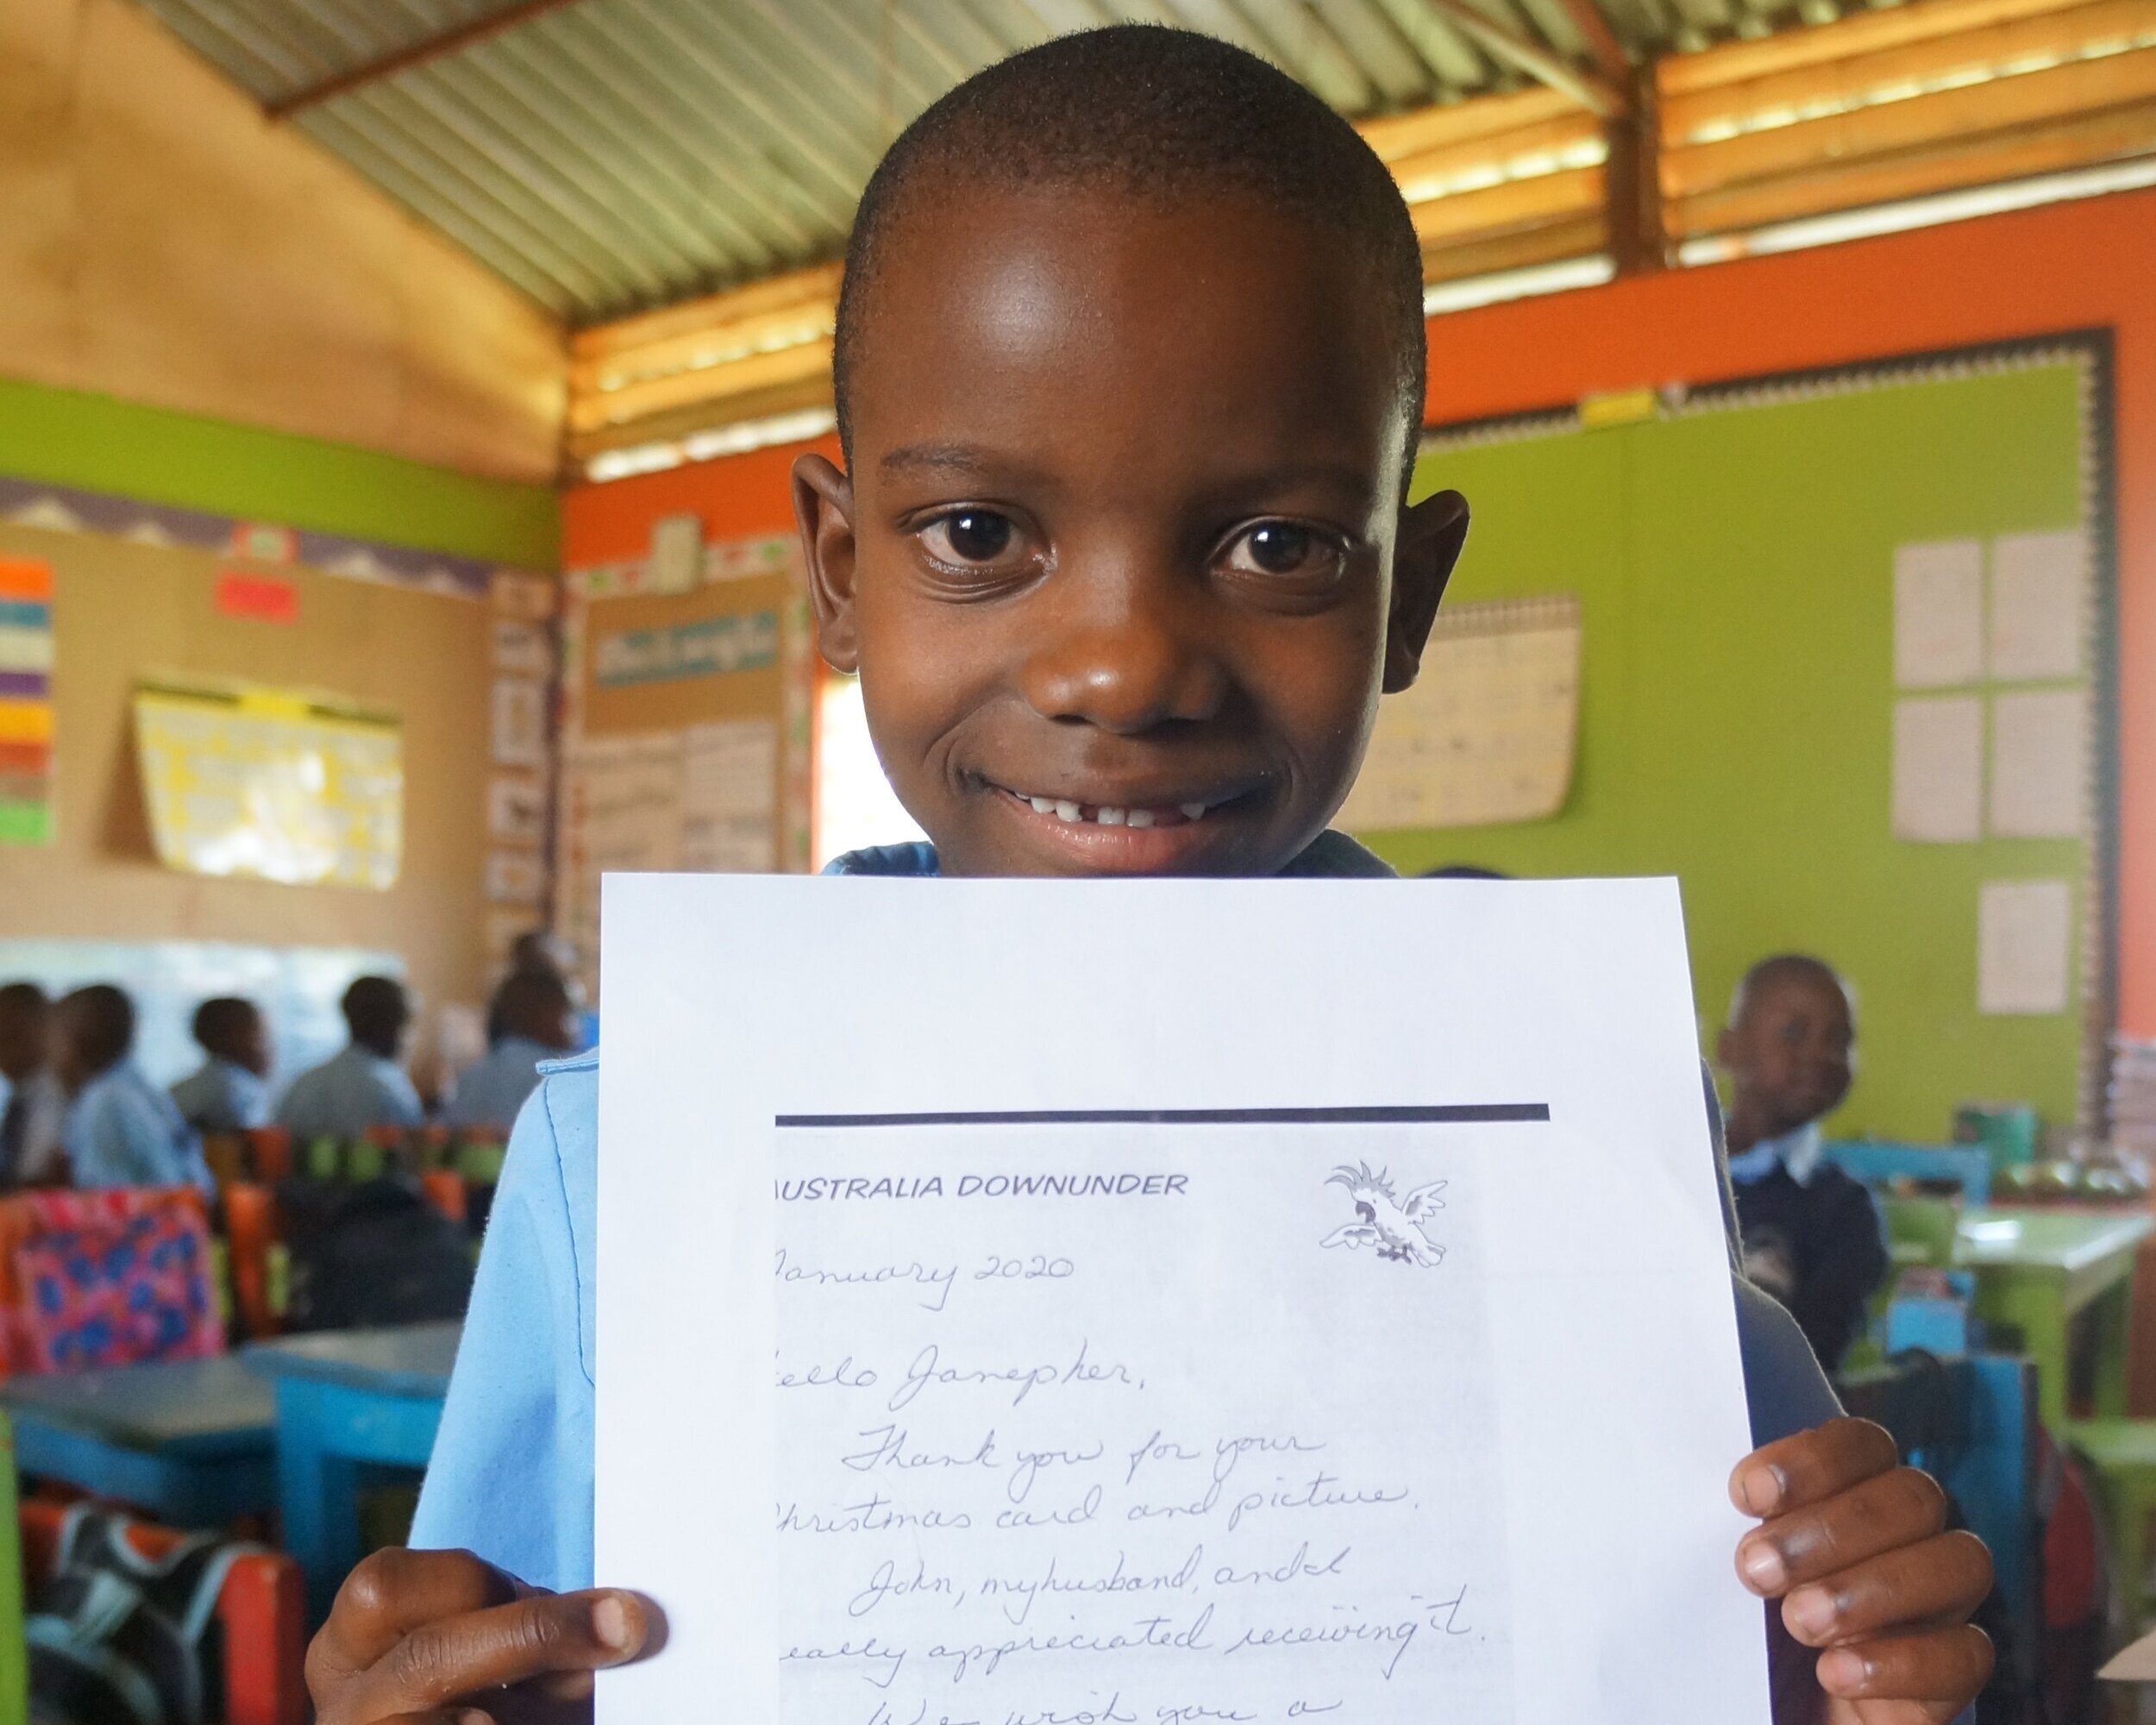 USTRALIA DOWNUNDER
January 2020
ello Janepher,
Thank you for your
Christmas card and picture.
John, my husband, and I
eally appreciated receiving it.
We wish you a